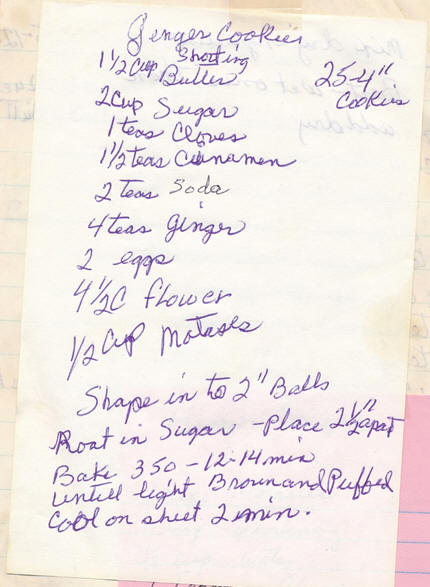 Ginger Cookies
Shorting
1 1/2 Cup Butter
25-4"
Cookies
2 Cup Sugar
1 teas Cloves
1 1/2 teas Cinnamen
2 teas Soda
4 teas ginger
2 eggs
4 1/2 C flower
1/2 Cup Molases
Shape in to 2" Balls
Roat in Sugar - Place 2 1/2" apat
Bake 350 - 12-14 min
untill light Brown and Puffed
Cool on sheet 2 min.